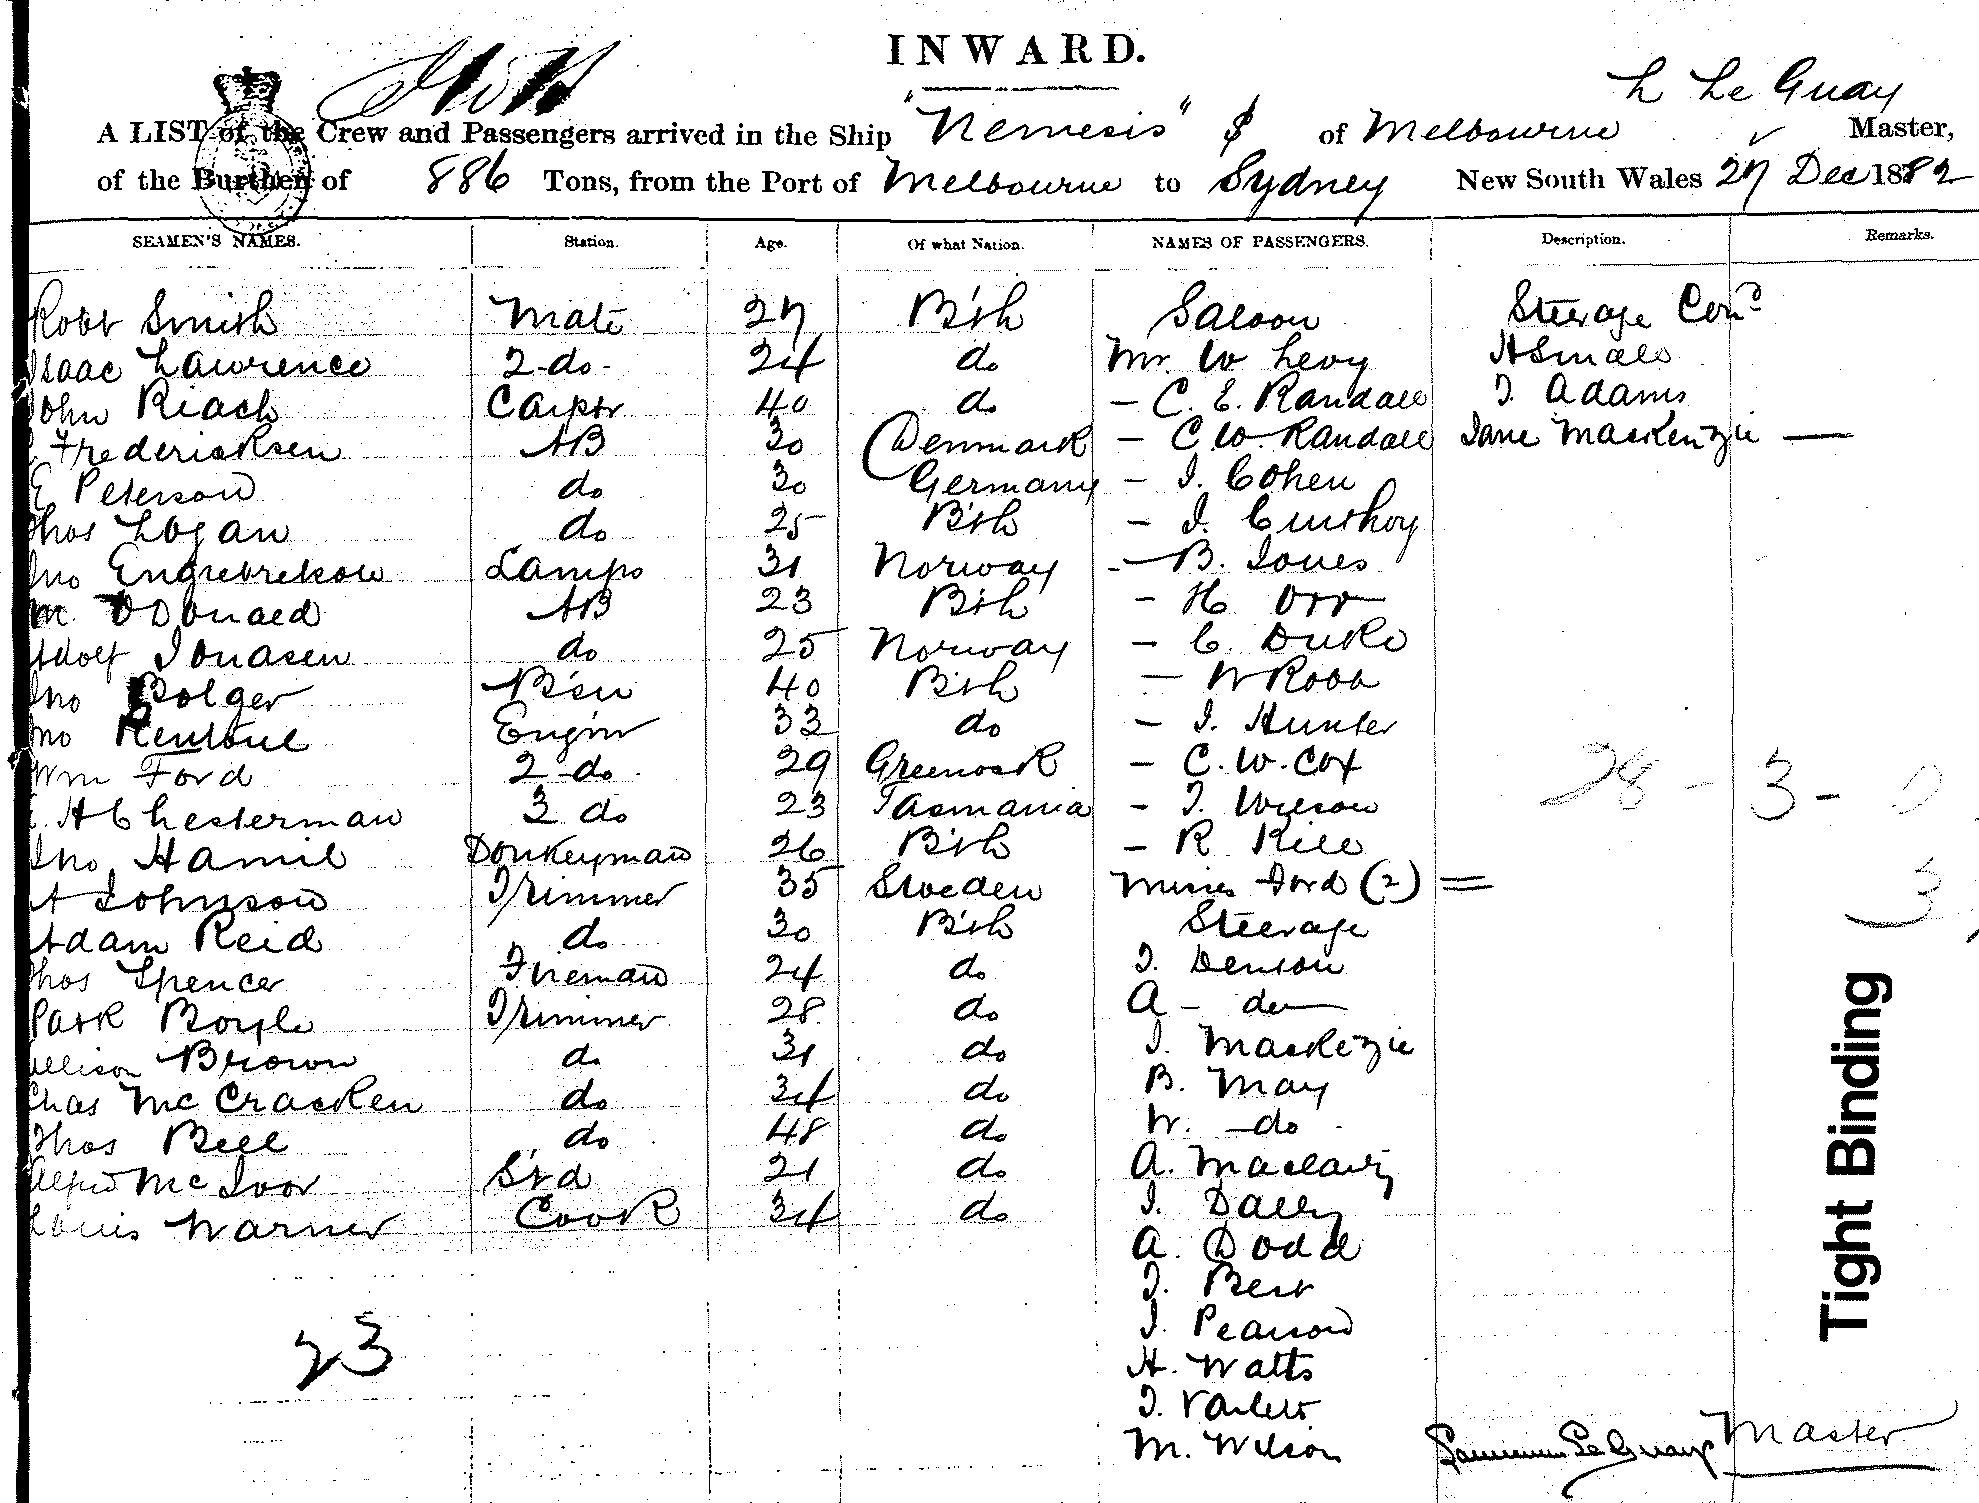 INWARD.
L Le Guay
A LIST of the Crew and Passengers arrived in the Ship "Nemesis" S of Melbourne Master,
of the Burthen of 886 Tons, from the Port of Melbourne to Sydney New South Wales 27 Dec 1882
SEAMEN'S NAMES. Station. Age. Of what Nation. NAMES OF PASSENGERS. Description. Remarks.
Robt Smith Mate 27 B'sh Saloon Steerage Cond
Isaac Lawrence 2 do 24 do Mr. W Levy H Smale
John Riach Carptr 40 do — C. E. Randall J. Adams
Fredericksen AB 30 Denmark — C W Randall Jane Mackenzie —
E Peterson do 30 Germany — J. Cohen
Thos Logan do 25 B'sh — J.
Jno Engrebrekson Lamps 31 Norway — B. Jones
Wm. O Donald AB 23 B'sh — H Orr
Adolf Jonasen do 25 Norway — C. Duke
Jno Bolger B'sn 40 B'sh — W Robb
Jno Rentoul Engin'r 33 do — J. Hunter
Wm Ford 2 do 29 Greenock — C. W. Cox
H Chesterman 3 do 23 Tasmania — J. Wilson
Jno Hamil Donkeyman 26 B'sh — R Rill
A Johnson Trimmer 35 Sweden Misses Ford (2) =
Adam Reid do 30 B'sh Steerage
Thos Spencer Fireman 24 do J. Denson
Patk Boyle Trimmer 28 do A — do —
Allison Brown do 31 do J. Mackezie
Chas McCracken do 34 do B. May
Thos Bell do 48 do W. — do
Alfred McIvor St'd 21 do A.
Louis Warner Cook 34 do J. Dally
A. Dodd
J. Best
J. Pearson
H. Watts
J. Varlett
M. Wilson
23
28 - 3 - 0
3
Le Guay Master
Tight Binding